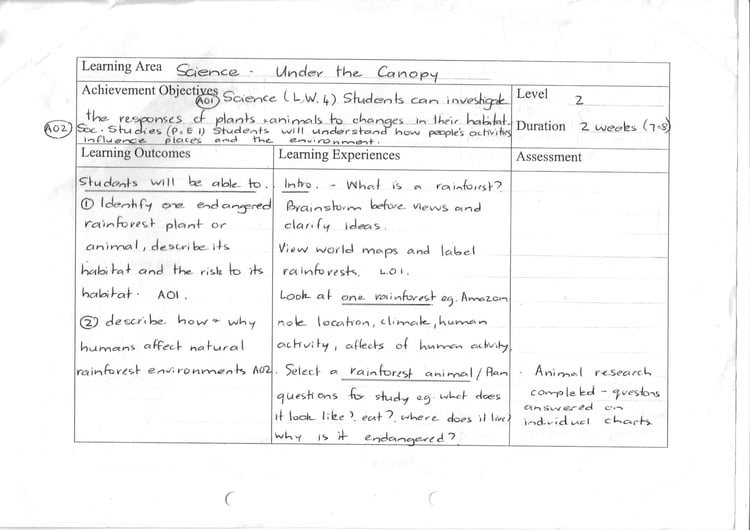 Learning Area Science - Under the Canopy
Achievement Objectives AO1 Science (L.W. 4) Students can investigate
the responses of plants + animals to changes in their habitat.
AO2 Soc. Studies (P. E 1) Students will understand how people's activities
influence places and the environment.
Level 2
Duration 2 weeks (7-8)
Learning Outcomes
Students will be able to.
① Identify one endangered
rainforest plant or
animal, describe its
habitat and the risk to its
habitat. AO1.
② describe how + why
humans affect natural
rainforest environments AO2.
Learning Experiences
Intro. - What is a rainforest?
Brainstorm before views and
clarify ideas.
View world maps and label
rainforests. L.O1.
Look at one rainforest eg. Amazon
note location, climate, human
activity, affects of human activity.
Select a rainforest animal / Plan
questions for study eg. what does
it look like?, eat?, where does it live?
Why is it endangered?
Assessment
· Animal research
completed - questions
answered on
individual charts